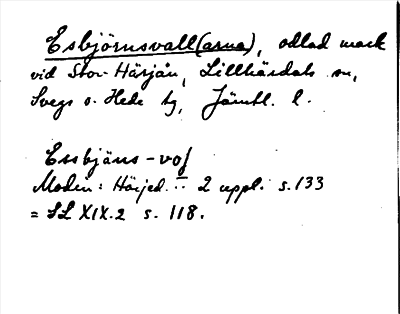 Esbjörnsvall(arna), odlad mark
vid Stor-Härjån, Lillhärdals sn,
Svegs o. Hede tg, Jämtl. l.
Essbjäns-voḷ
Modin: Härjed... 2 uppl. s. 133
= SL XIX.2 s. 118.